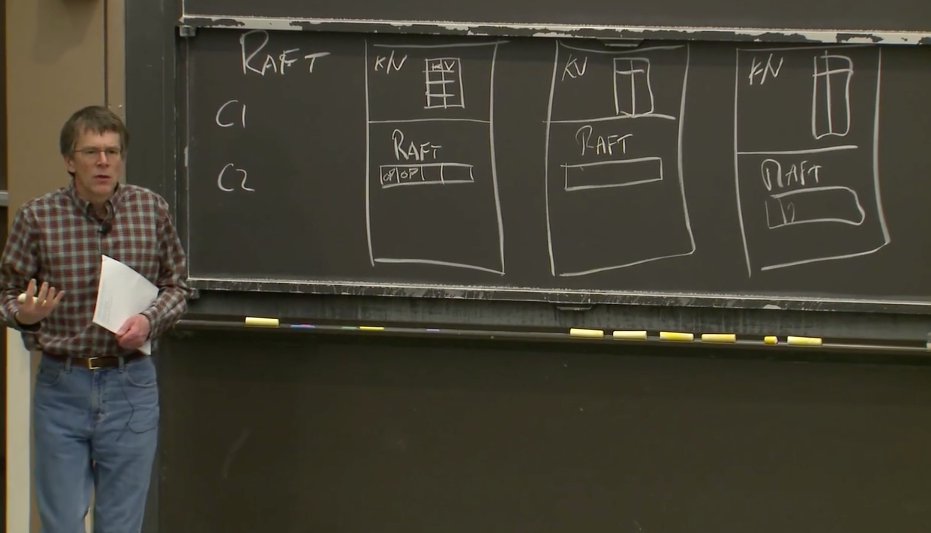 RAFT
C1
C2
KV
KV
RAFT
OP OP
KV
RAFT
KV
RAFT